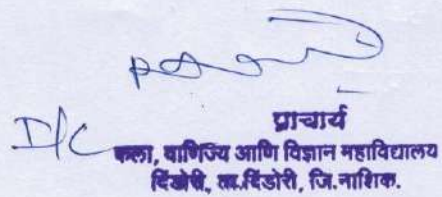 I/C
प्राचार्य
कला, वाणिज्य आणि विज्ञान महाविद्यालय
दिंडोरी, ता.दिंडोरी, जि.नाशिक.